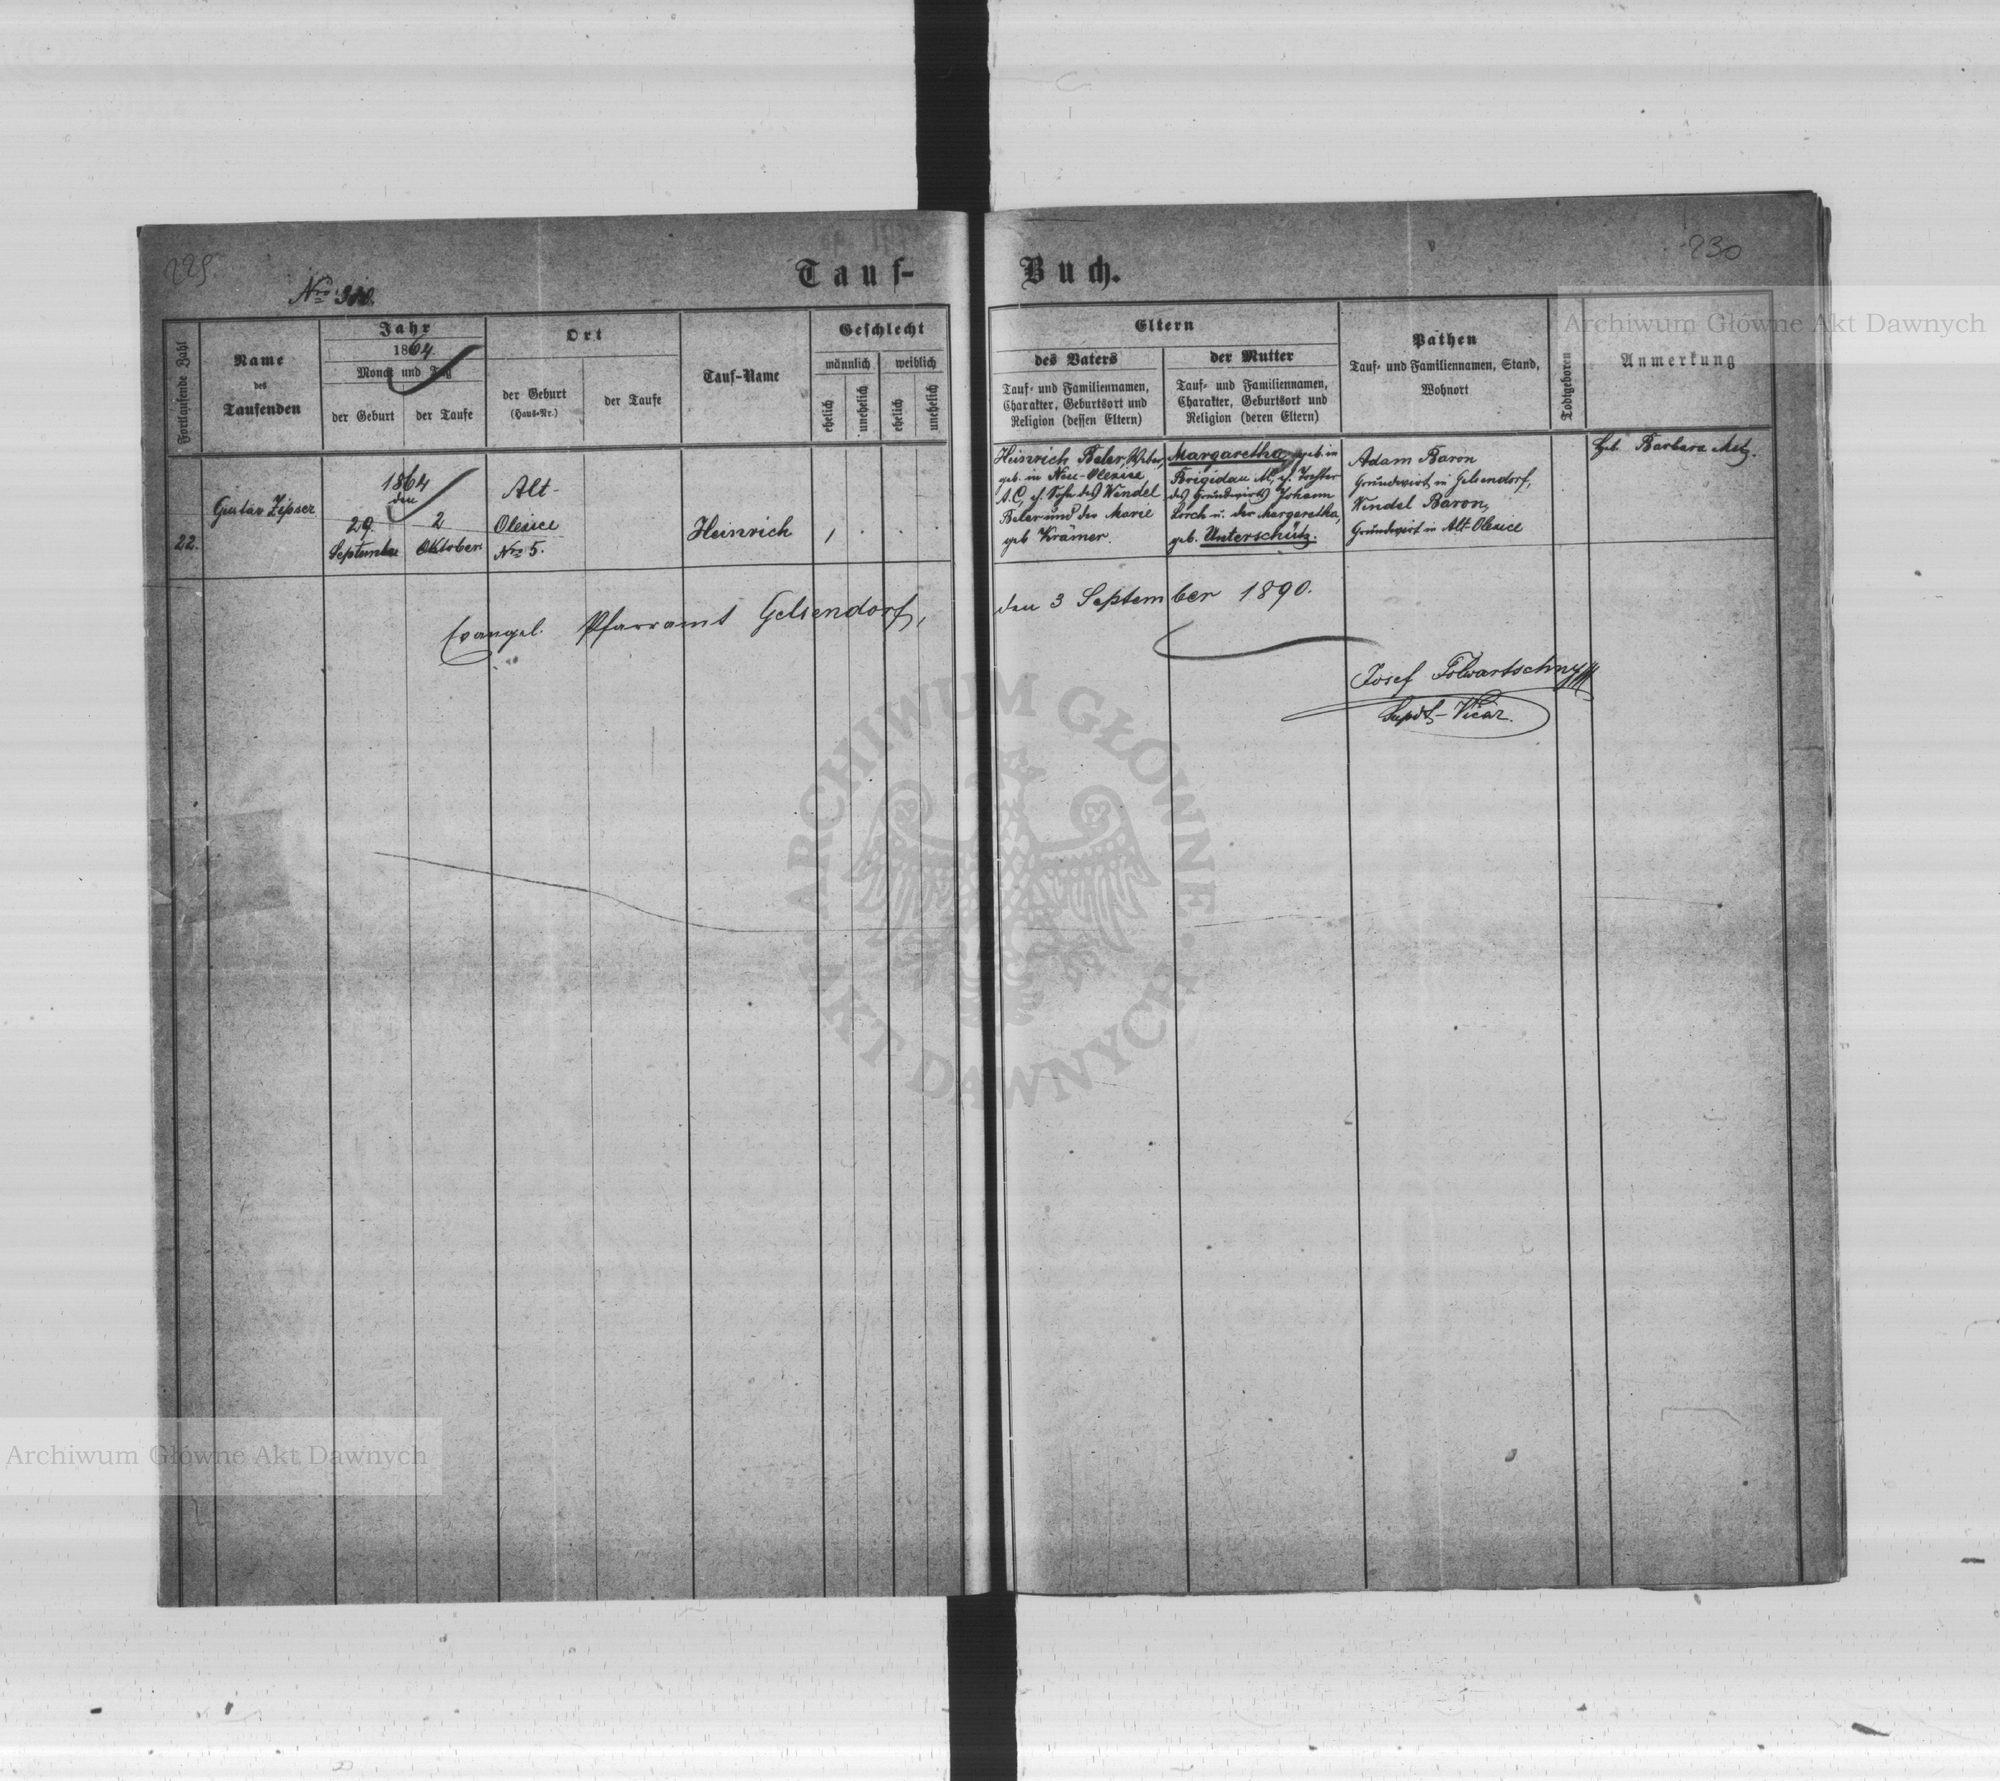 229.
230
Nro 310.
Tauf-
Buch.
Fortlaufende Zahl
Name
des
Taufenden
Jahr
1864.
Monat und Tag
der Geburt
der Taufe
Ort
der Geburt
(Haus-Nr.)
der Taufe
Tauf-Name
Geschlecht
männlich
weiblich
ehelich
unehelich
ehelich
unehelich
Eltern
des Vaters
Tauf- und Familiennamen,
Charakter, Geburtsort und
Religion (dessen Eltern)
der Mutter
Tauf- und Familiennamen,
Charakter, Geburtsort und
Religion (deren Eltern)
Pathen
Tauf- und Familiennamen, Stand,
Wohnort
Todtgeboren
Anmerkung
22.
Gustav Zipser
1864
den
29
September
2
Oktober
Alt-
Olexice
Nro 5.
Heinrich
1
Heinrich Beler, Weber,
geb. in Neu-Olexice
A.C, ef. Sohn des Wendel
Beler und der Marie
geb Krämer.
Margaretha, geb. in
Brigidau AC, ef. Tochter
des Grundwirts Johann
Lorch u. der Margaretha,
geb. Unterschütz.
Adam Baron
Grundwirt in Gelsendorf,
Wendel Baron,
Grundwirt in Alt Olexice
Heb. Barbara Metz.
Evangel. Pfarramt Gelsendorf, den 3 September 1890.
Josef Folwartschny
Supdt-Vicar.
Archiwum Główne Akt Dawnych
ARCHIWUM GŁÓWNE AKT DAWNYCH
Archiwum Główne Akt Dawnych